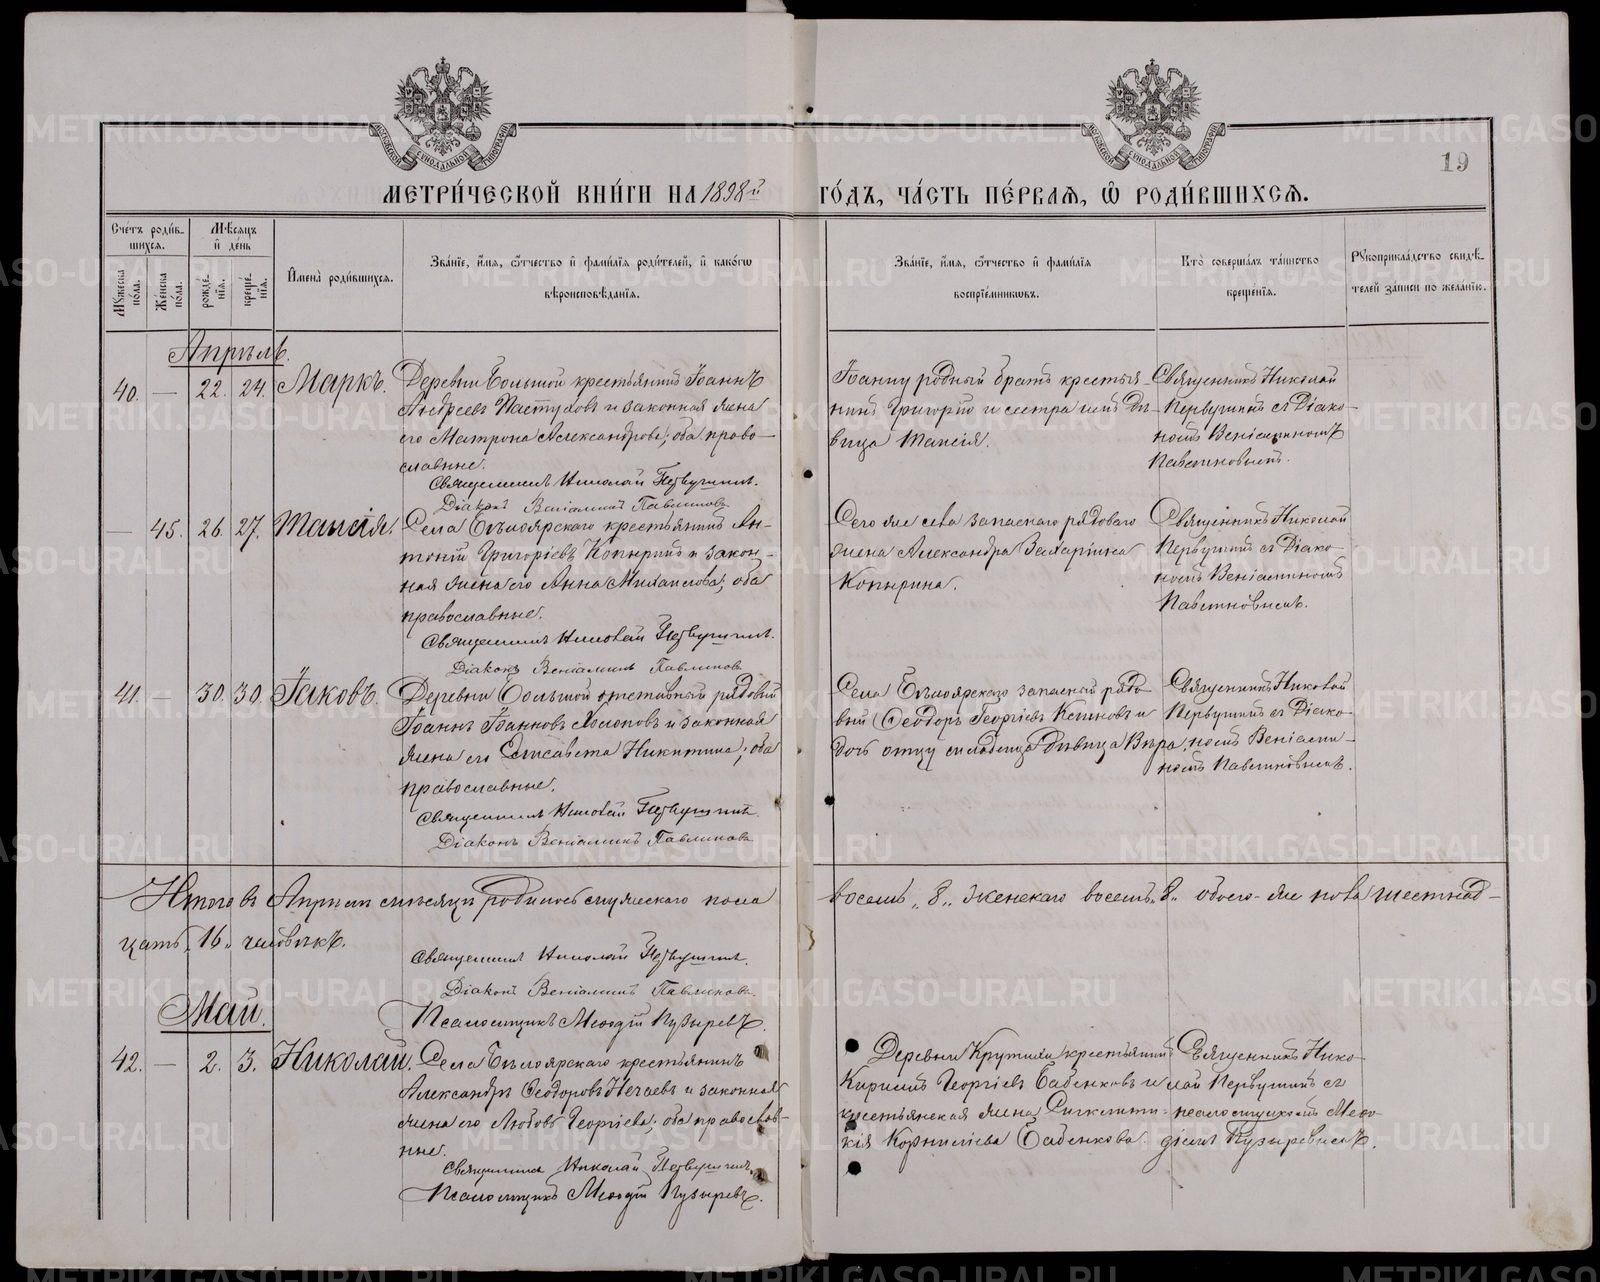 19
МЕТРИЧЕСКОЙ КНИГИ НА 1898й ГОДЪ, ЧАСТЬ ПЕРВАЯ, Ѡ РОДИВШИХСЯ.
Счетъ родившихся.
Мужеска пола.
Женска пола.
Мѣсяцъ и день
рожденія.
крещенія.
Имена родившихся.
Званіе, имя, отчество и фамилія родителей, и какого
вѣроисповѣданія.
Званіе, имя, отчество и фамилія
воспріемниковъ.
Кто совершалъ таинство
крещенія.
Рукоприкладство свидѣ-
телей записи по желанію.
Апрѣль.
40. — 22. 24. Маркъ.
Деревни Большой крестьянинъ Іоаннъ
Андреевъ Пастуховъ и законная жена
его Матрона Александрова; оба право-
славные.
Священникъ Николай Первушинъ.
Діаконъ Веніаминъ Павлиновъ
Іоанну родный братъ крестья-
нинъ Григорій и сестра имъ дѣ-
вица Таисія.
Священникъ Николай
Первушинъ съ Діако-
номъ Веніаминомъ
Павлиновымъ.
— 45. 26. 27. Таисія.
Села Бѣлоярскаго крестьянинъ Ан-
тоній Григоріевъ Копыринъ и закон-
ная жена его Анна Михаилова; оба
православные.
Священникъ Николай Первушинъ.
Діаконъ Веніаминъ Павлиновъ
Того же села запаснаго рядоваго
жена Александра Захаріина
Копырина.
Священникъ Николай
Первушинъ съ Діако-
номъ Веніаминомъ
Павлиновымъ.
41. — 30. 30. Іаковъ.
Деревни Большой отставный рядовый
Іоаннъ Іоанновъ и законная
жена его Елисавета Никитина; оба
православные.
Священникъ Николай Первушинъ.
Діаконъ Веніаминъ Павлиновъ
Села Бѣлоярскаго запасный рядо-
вый Ѳеодоръ Георгіевъ и
дочь отцу младенца дѣвица Вѣра.
Священникъ Николай
Первушинъ съ Діако-
номъ Веніами-
номъ Павлиновымъ.
Итого въ Апрѣлѣ мѣсяцѣ родилось мужескаго пола восемь „8„ женскаго восемь „8„ обоего-же пола шестнад-
цать „16„ человѣкъ.
Священникъ Николай Первушинъ.
Діаконъ Веніаминъ Павлиновъ.
Псаломщикъ Меѳодій Пузыревъ.
Май.
42. — 2. 3. Николай.
Села Бѣлоярскаго крестьянинъ
Александръ Ѳеодоровъ Нечаевъ и законная
жена его Любовь Георгіева; оба православ-
ные.
Священникъ Николай Первушинъ.
Псаломщикъ Меѳодій Пузыревъ.
Деревни крестьянинъ
Кириллъ Георгіевъ Бабенковъ и
крестьянская жена Сигклити-
кія Корниліева Бабенкова.
Священникъ Нико-
лай Первушинъ съ
псаломщикомъ Меѳо-
діемъ Пузыревымъ.
METRIKI.GASO-URAL.RU